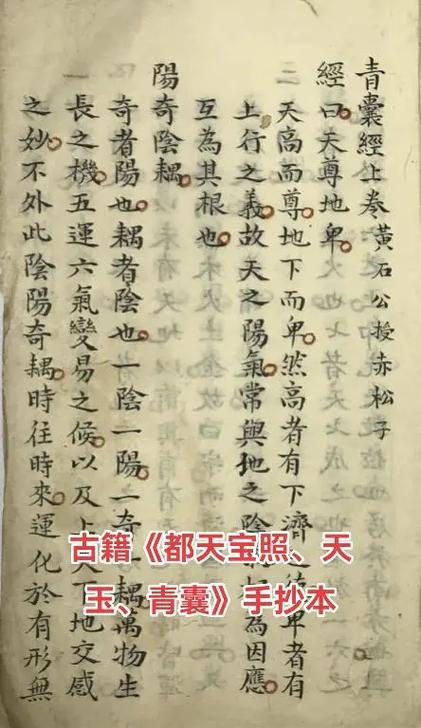 青囊經上卷黃石公授赤松子
經曰天尊地卑
天高而尊地下而卑然高者有下濟之卑者有
上行之義故天之陽氣常與地之陰為因應
互為其根也
陽奇陰耦
奇者陽也耦者陰也一陰一陽一奇一耦萬物生
長之機五運六氣變易之候以及上天下地交感
之妙不外此陰陽奇耦時往時來運化於有形無
古籍《都天宝照、天
玉、青囊》手抄本